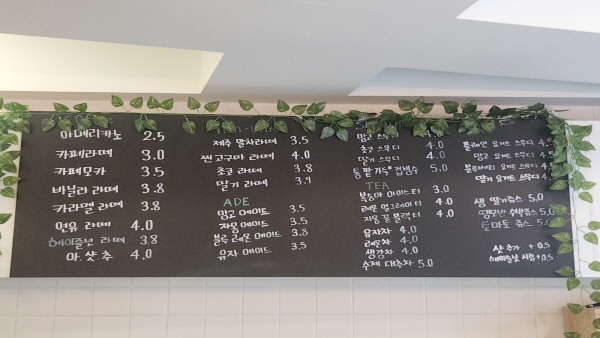 아메리카노 2.5
카페라떼 3.0
카페모카 3.5
바닐라 라떼 3.8
카라멜 라떼 3.8
연유 라떼 4.0
헤이즐넛 라떼 3.8
아.샷.추 4.0
제주 말차라떼 3.5
찐고구마 라떼 4.0
초코 라떼 3.8
딸기 라떼 3.9
ADE
망고 에이드 3.5
자몽 에이드 3.5
블루레몬 에이드 3.8
유자 에이드 3.5
망고 스무디 4.
초코 스무디 4.0
딸기 스무디 4.0
통팥 가득 컵빙수 5.0
TEA
복숭아 아이스티 3.0
레몬 얼그레이티 4.0
자몽 폴 블랙티 4.0
유자차 4.0
레몬차 4.0
생강차 4.0
수제 대추차 5.0
플레인 요거트 스무디 4.
망고 요거트 스무디 4.
블루베리 요거트 스무디 4.
딸기 요거트 스무디 4.
생 딸기쥬스 5.0
수박쥬스 5.0
토마토 쥬스 5.0
샷 추가 +0.5
헤이즐넛 시럽 +0.5